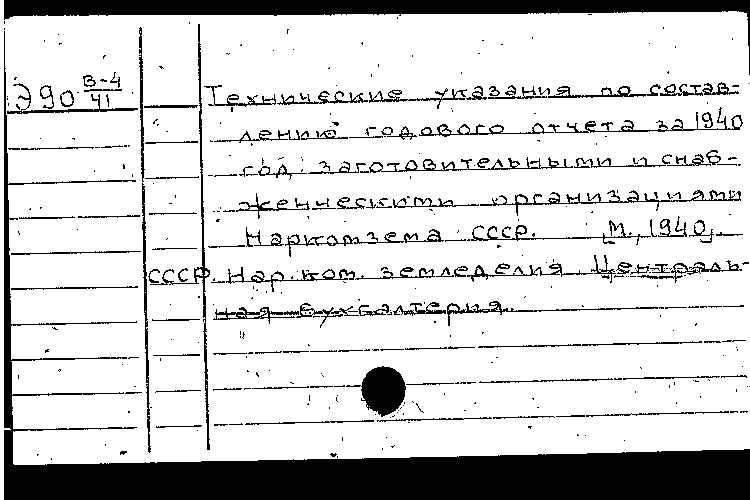 Э90 В-4/41
Технические указания по состав-
лению годового отчета за 1940
год заготовительными и снаб-
женческими организациями
Наркомзема СССР. [М., 1940].
СССР. Нар. ком. земледелия. Централь-
ная бухгалтерия.